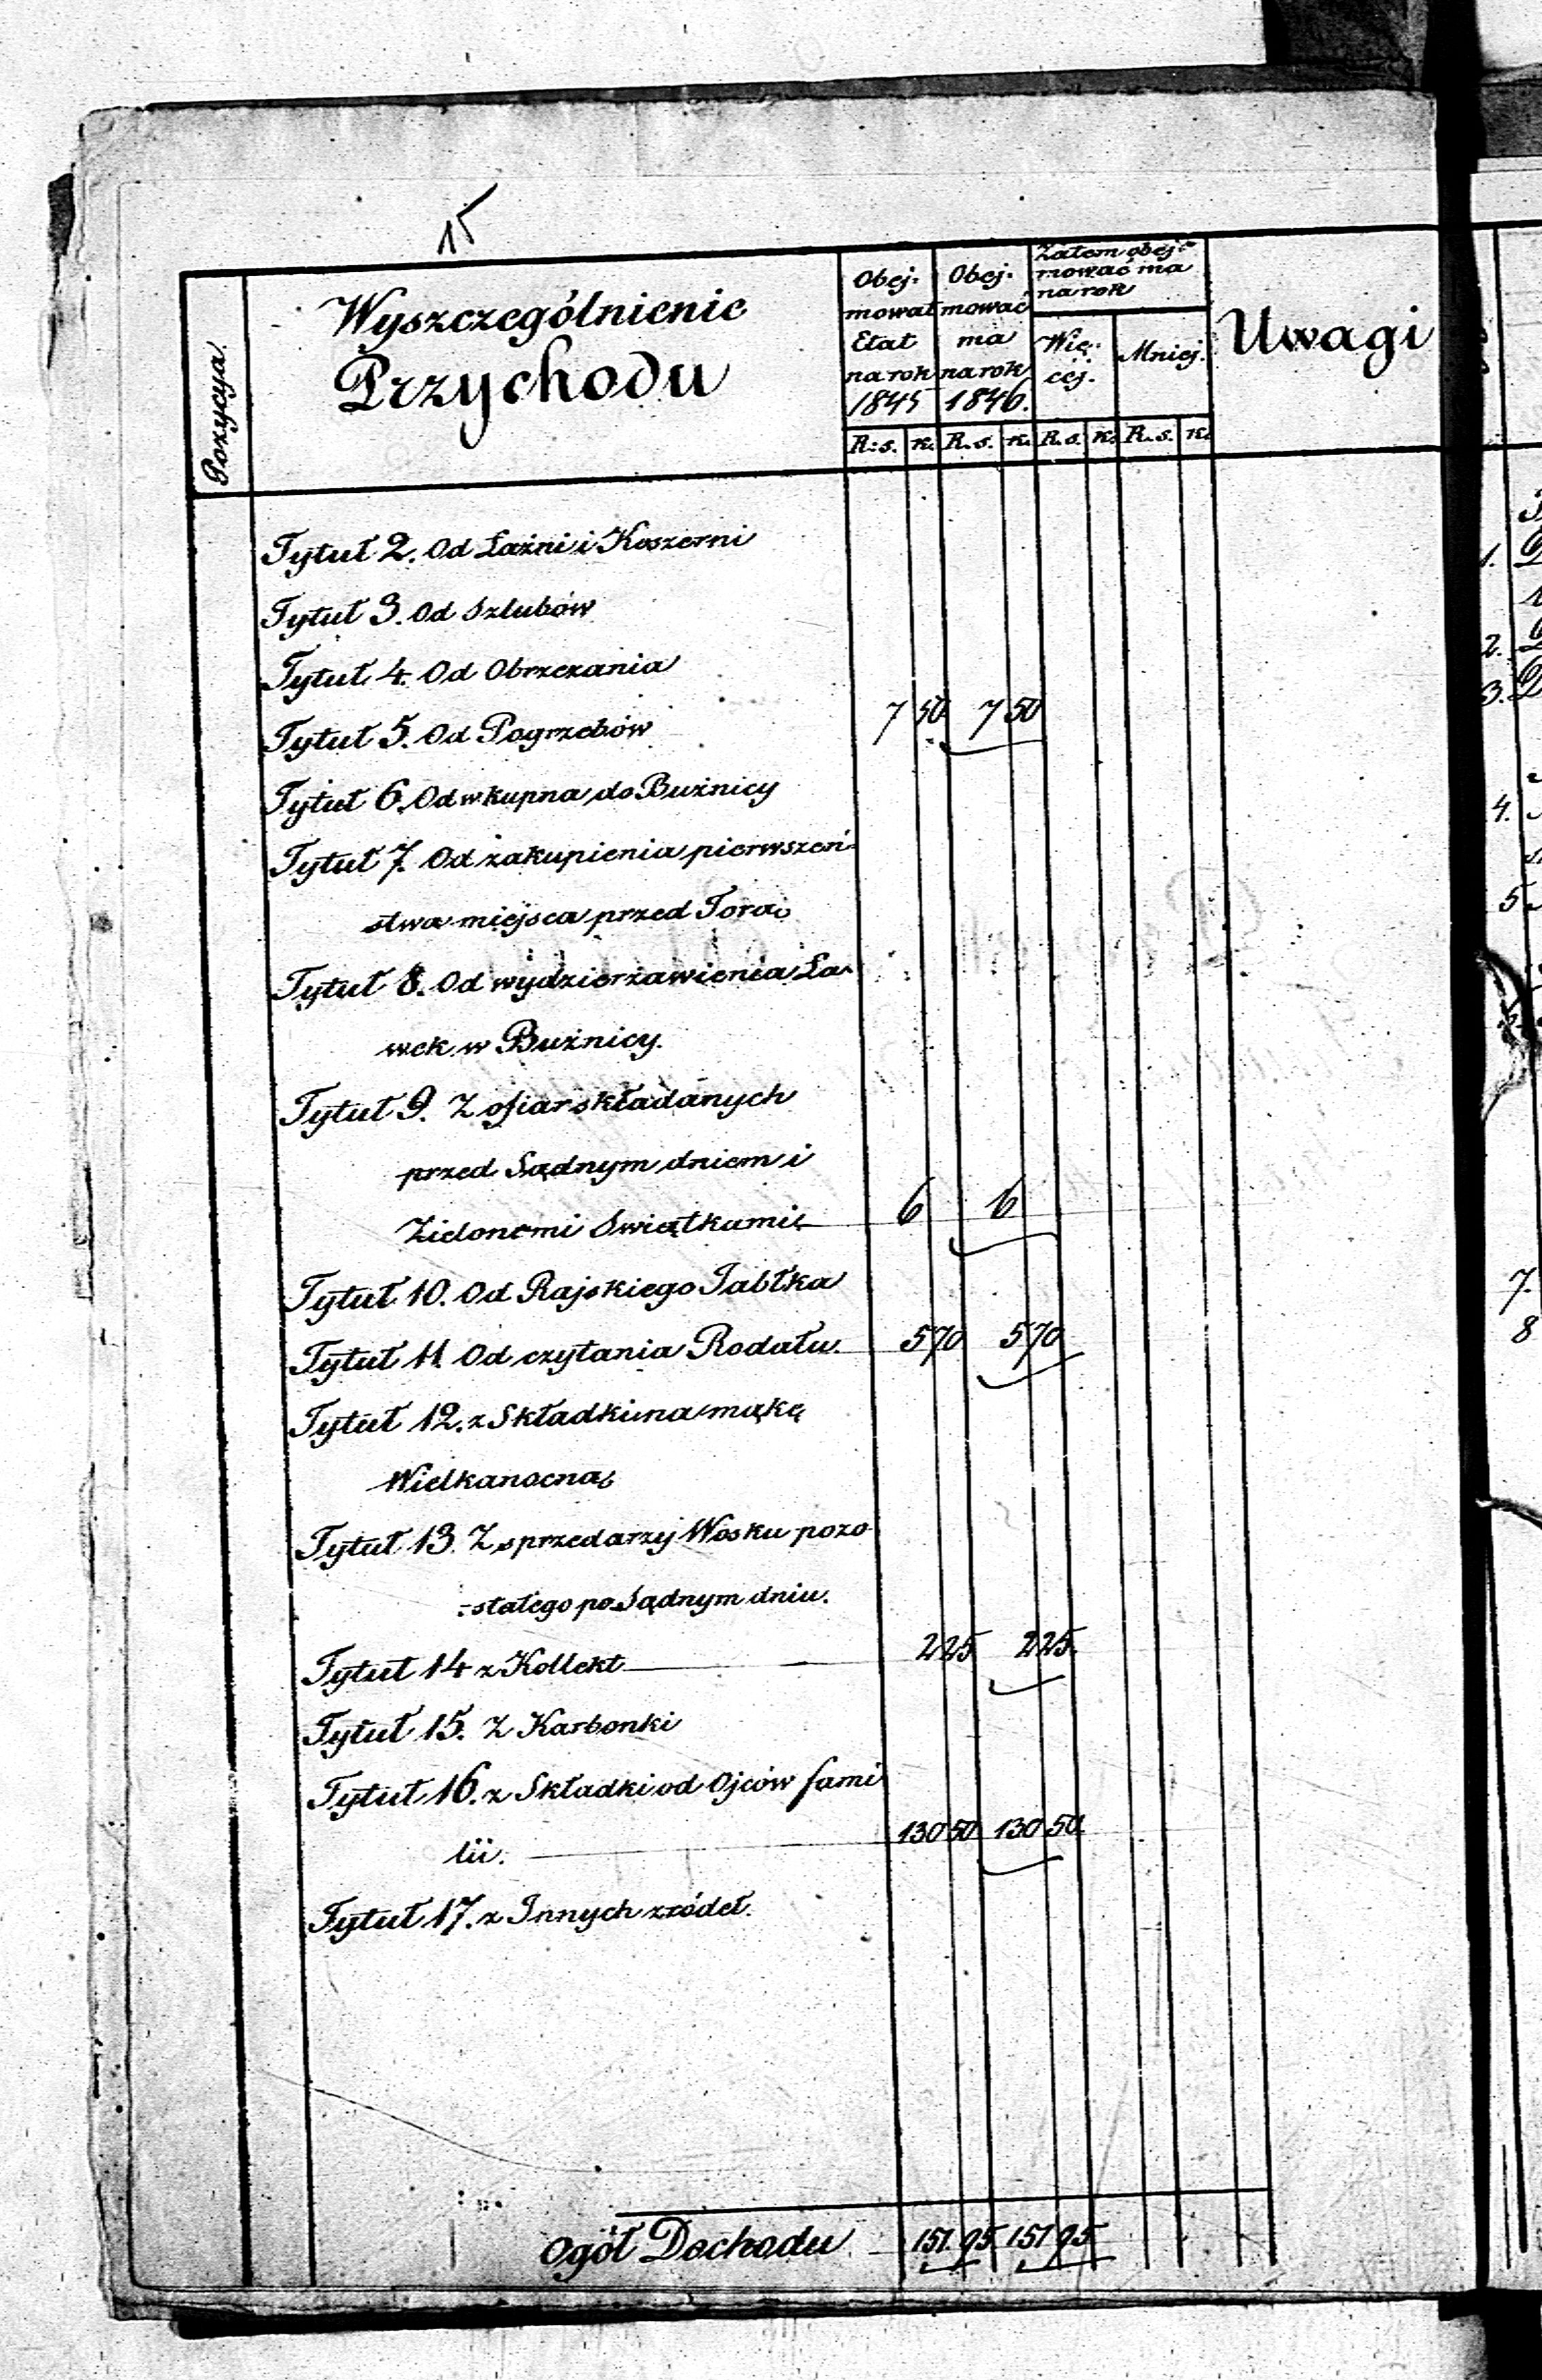 15
Pozycya.
Wyszczególnienie
Przychodu
Obej-
mował
Etat
na rok
1845
Obej-
mować
ma
na rok
1846.
Zatem obej-
mować ma
na rok
Wię-
cej.
Mniej.
Uwagi
R: s. K. R. s. K. R. s. K. R. s. K.
Tytuł 2. Od Łaźni i Koszerni
Tytuł 3. Od Szlubów
Tytuł 4. Od Obrzezania
Tytuł 5. Od Pogrzebów 7 50 7 50
Tytuł 6. Od wkupna do Bużnicy
Tytuł 7. Od zakupienia pierwszeń-
stwa miejsca przed Torą
Tytuł 8. Od wydzierżawienia Ła-
wek w Bużnicy.
Tytuł 9. Z ofiar składanych
przed Sądnym dniem i
Zielonemi Swiątkami 6 6
Tytuł 10. Od Rajskiego Jabłka
Tytuł 11. Od czytania Rodału. 5 70 5 70
Tytuł 12. z Składki na mąkę
Wielkanocną
Tytuł 13. Z sprzedarzy Wosku pozo-
-stałego po Sądnym dniu.
Tytuł 14 z Kollekt 2 25 2 25.
Tytuł 15. Z Karbonki
Tytuł 16. z Składki od Ojców fami
lii. 130 50 130 50
Tytuł 17. z Innych zródeł.
Ogół Dochodu 151. 95 151 95
1.
2.
3.
4.
5
7.
8